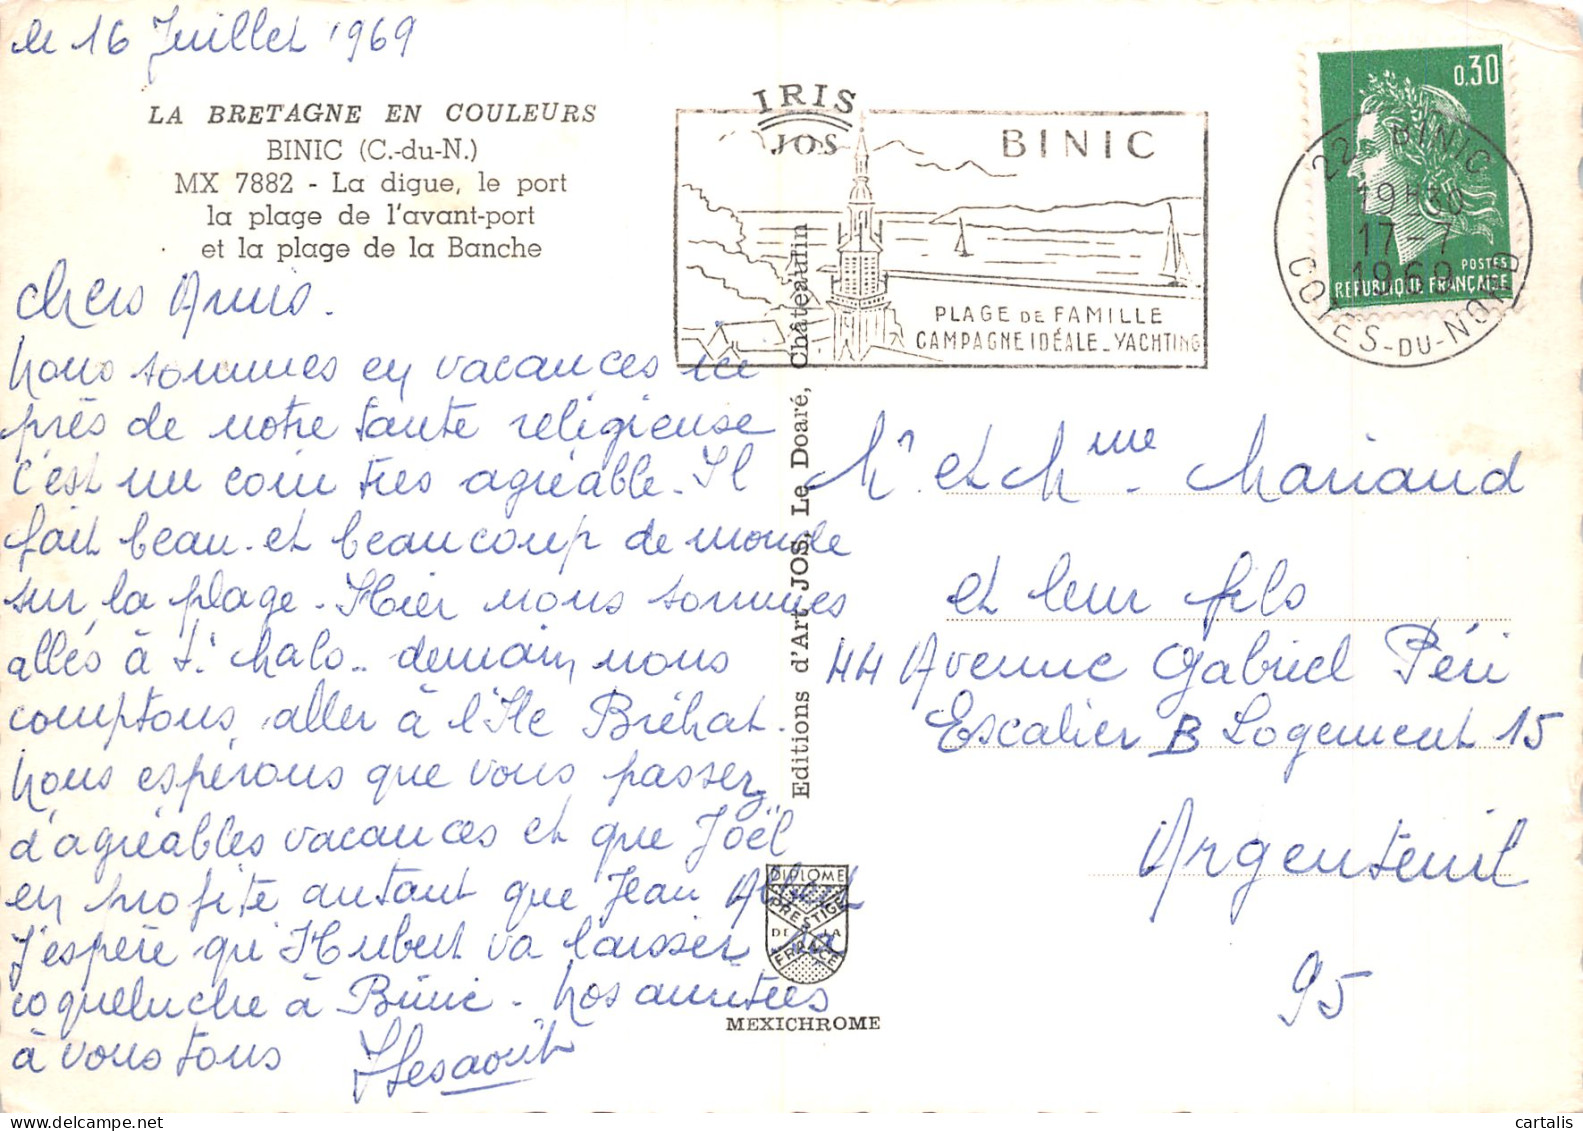 le 16 Juillet 1969
LA BRETAGNE EN COULEURS
BINIC (C.-du-N.)
MX 7882 - La digue, le port
la plage de l'avant-port
et la plage de la Banche
Chers Amis.
Nous sommes en vacances ici
près de notre tante religieuse
c'est un coin très agréable. Il
fait beau et beaucoup de monde
sur la plage. Hier nous sommes
allés à St. Malo.. demain nous
comptons aller à l'Ile Bréhat.
Nous espérons que vous passez
d'agréables vacances et que Joël
en profite autant que Jean
J'espère qu'Hubert va laisser sa
coqueluche à Binic. Nos amitiés
à vous tous
IRIS
JOS
BINIC
PLAGE DE FAMILLE
CAMPAGNE IDÉALE_YACHTING
0,30
POSTES
REPUBLIQUE FRANÇAISE
22 BINIC
19H30
17-7
1969
COTES-DU-NORD
Editions d'Art JOS, Le Doaré, Châteaulin
DIPLOME
PRESTIGE
DE LA
FRANCE
MEXICHROME
Mr et Mme Mariaud
et leur fils
44 Avenue Gabriel Péri
Escalier B Logement 15
Argenteuil
95
cartalis